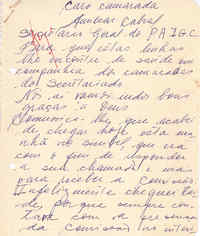 Caro camarada
Amilcar Cabral
Secretário Geral do P.A.I.G.C.
Para que estas linhas
lhe encontre de saúde em
companhia dos camaradas
do Secretariado
Nós ca vamos indo bons
graças a Deus
Comunico-lhe que acabei
de chegar hoje esta ma
nhã no que era
com o fim de responder
a sua chamada e mais
para receber a comissão
Infelizmente cheguei tar
de, por que sempre con
tava com a presença
da comissão